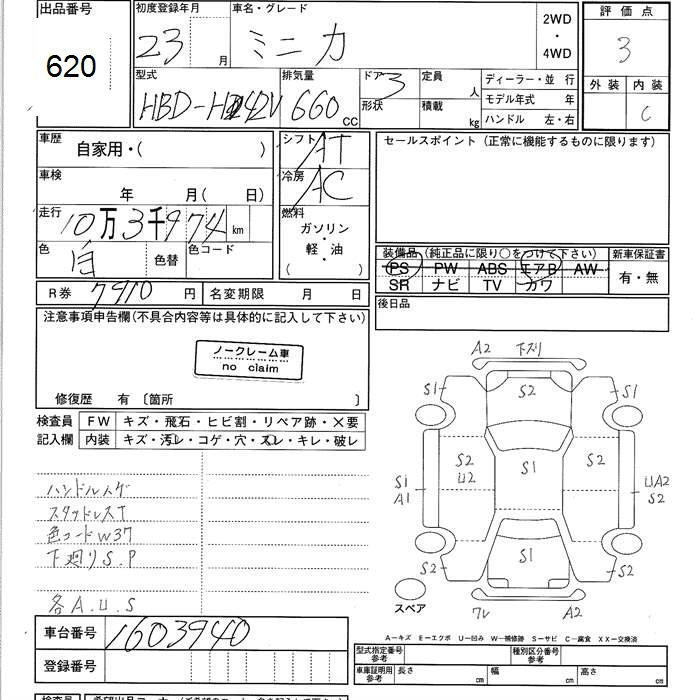 出品番号
620
初度登録年月
23 月
車名・グレード
ミニカ
2WD
・
4WD
評価点
3
外装 内装
C
型式
HBD-H42V
排気量
660 CC
ドア 3
形状
定員 人
積載 kg
ディーラー・並行
モデル年式 年
ハンドル 左・右
車歴
自家用・( )
車検
年 月( 日)
走行
10万3千974 km
色
白
色替
色コード
シフト
AT
冷房
AC
燃料
ガソリン
・
軽・油
( )
セールスポイント(正常に機能するものに限ります)
装備品(純正品に限り○をつけて下さい)
PS PW ABS エアB AW
SR ナビ TV カワ
新車保証書
有・無
R券 7910 円
名変期限 月 日
後日品
注意事項申告欄(不具合内容等は具体的に記入して下さい)
ノークレーム車
no claim
修復歴 有 〔箇所 〕
検査員
記入欄
FW キズ・飛石・ヒビ割・リペア跡・×要
内装 キズ・汚レ・コゲ・穴・スレ・キレ・破レ
ハンドルスゲ
スタッドレスT
色コードW37
下廻りS.P
各A.U.S
A2 下ズリ
S1 S2 S1
S2 U2 S1 S2
S1 A1
UA2 S2
S2 S1 S2
ワレ A2
スペア
車台番号 1603940
登録番号
A－キズ E－エクボ U－凹み W－補修跡 S－サビ C－腐食 XX－交換済
型式指定番号
参考
種別区分番号
参考
車庫証明用
参考
長さ cm 幅 cm 高さ cm